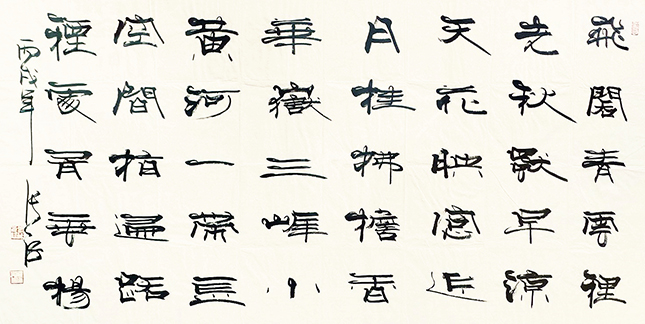 飛閣青雲裡
先秋獨早涼
天花映窗近
月桂拂檐香
華嶽三峰小
黃河一帶長
空間指歸路
煙處有垂楊
丙戌年 張海